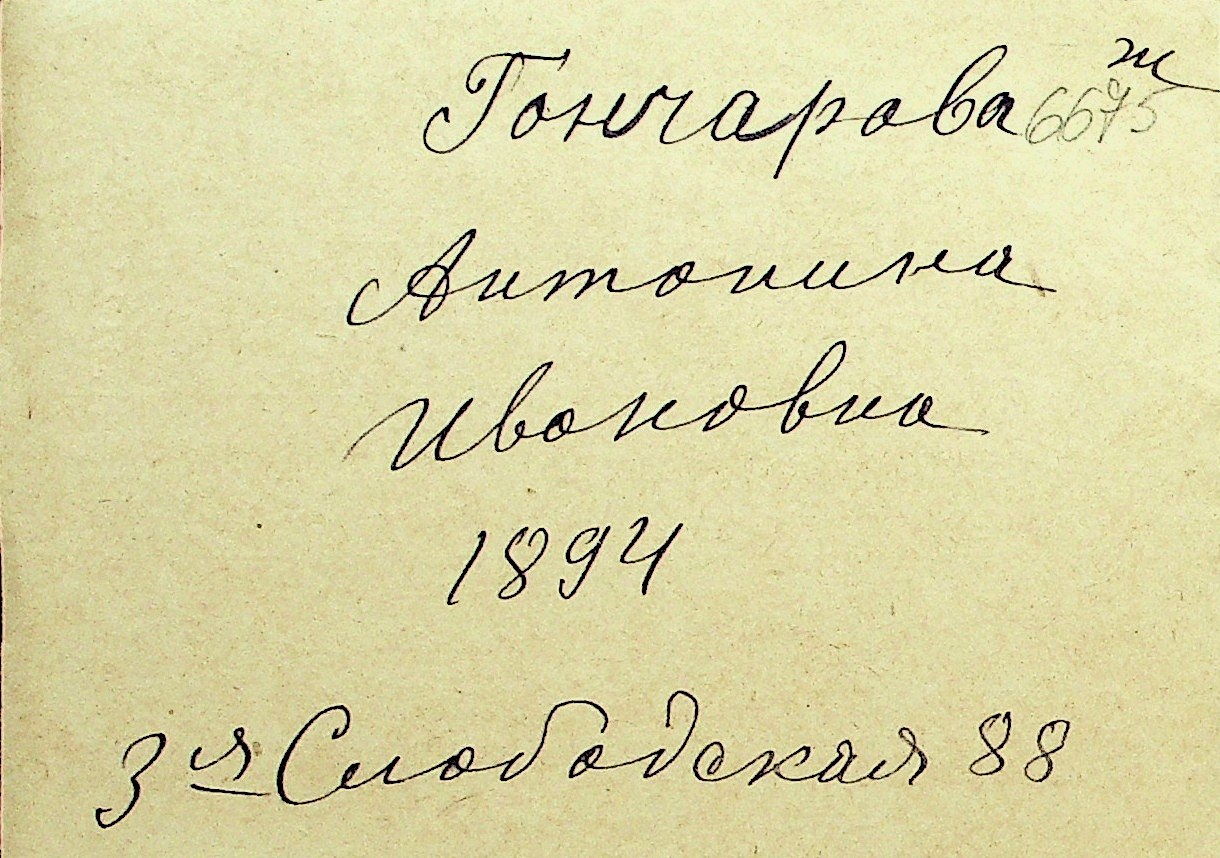 Гончарова ж 6675
Антонина
Ивановна
1894
3я Слободская 88